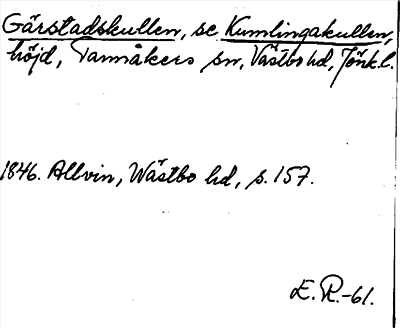 Gårstadskullen, se Kumlingakullen,
höjd, Tannåkers sn, Västbo hd, Jönk.l.
1846. Allvin, Wästbo hd, s. 157.
E.R.-61.